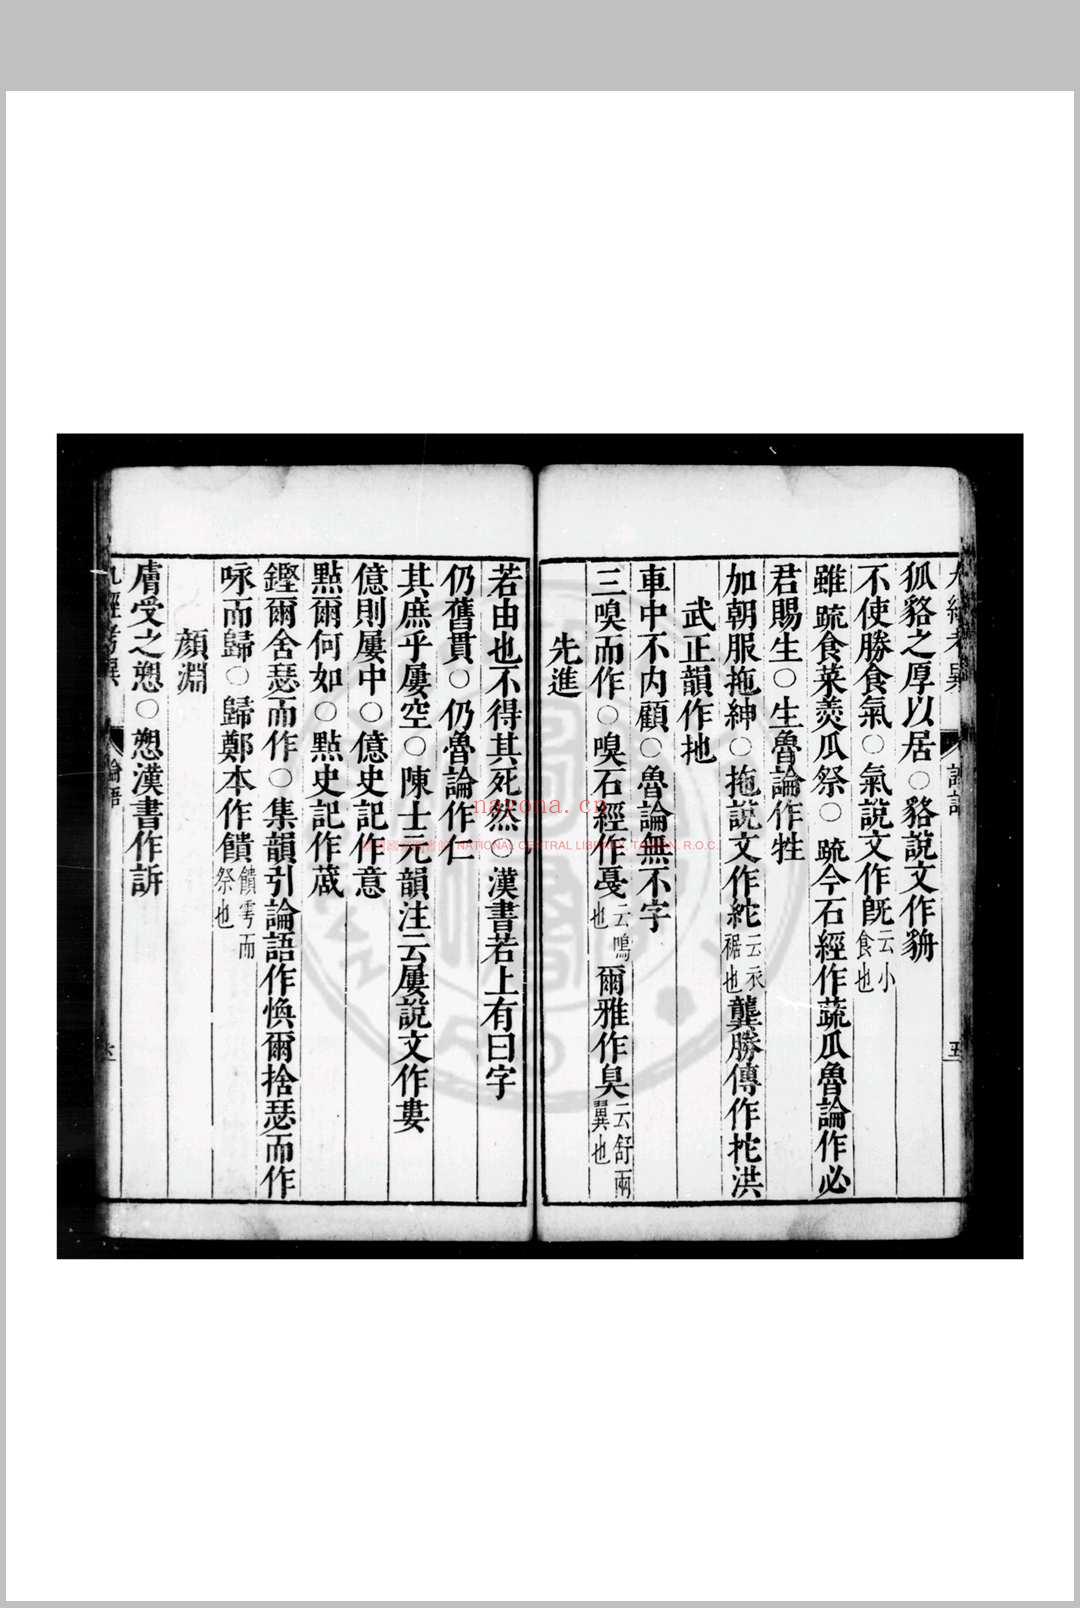 狐貉之厚以居○貉說文作貈
不使勝食氣○氣說文作旣云小食也
雖疏食菜羮瓜祭○疏今石經作蔬瓜魯論作必
君賜生○生魯論作牲
加朝服拖紳○拖說文作袉云衣裾也龔勝傳作扡洪
武正韻作地
車中不内顧○魯論無不字
三嗅而作○嗅石經作戞云鳴也爾雅作臭云舒兩翼也
先進
若由也不得其死然○漢書若上有曰字
仍舊貫○仍魯論作仁
其庶乎屢空○陳士元韻注云屢說文作婁
億則屢中○億史記作意
點爾何如○點史記作蒧
鏗爾舍瑟而作○集韻引論語作㷡爾捨瑟而作
咏而歸○歸鄭本作饋饋雩而祭也
顔淵
膚受之愬○愬漢書作訴
九經考異
論語
nayona.cn
NATIONAL CENTRAL LIBRARY, TAIWAN, R.O.C.